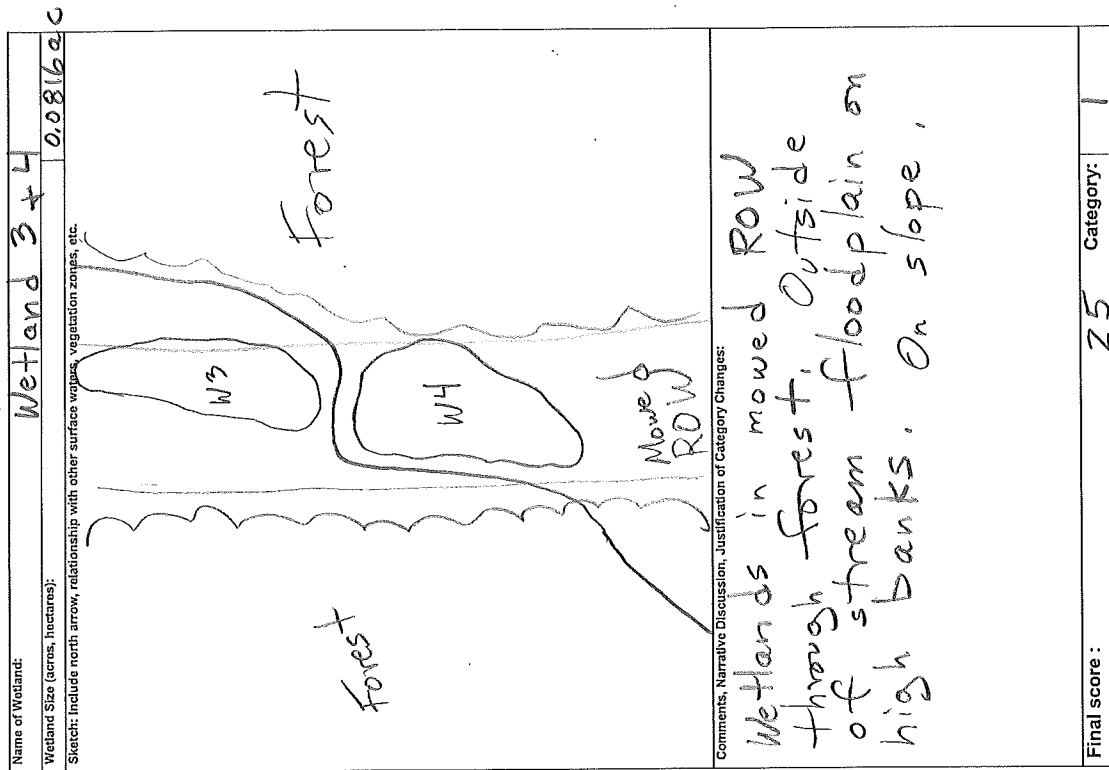 Name of Wetland: Wetland 3 + 4
Wetland Size (acres, hectares): 0.0816 ac
Sketch: Include north arrow, relationship with other surface waters, vegetation zones, etc.
Forest
W3
W4
Forest
Mowed
ROW
Comments, Narrative Discussion, Justification of Category Changes:
Wetlands in mowed ROW
through forest. Outside
of stream floodplain on
high banks. On slope.
Final score : 25 Category: 1